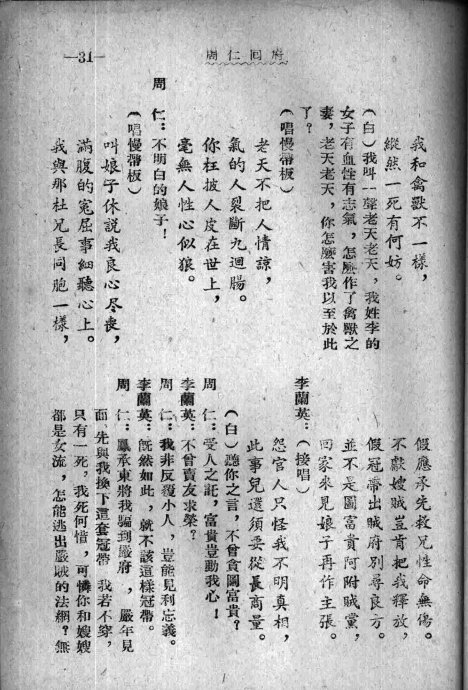 周仁回府
—31—
我和禽獸不一樣，
縱然一死有何妨。
（白）我叫一聲老天老天，我姓李的
女子有血性有志氣，怎麼作了禽獸之
妻，老天老天，你怎麼害我以至於此
了？
（唱慢帶板）
老天不把人情諒，
氣的人裂斷九迴腸。
你枉披人皮在世上，
毫無人性心似狼。
周　仁：不明白的娘子！
（唱慢帶板）
叫娘子休說我良心尽喪，
滿腹的冤屈事細聽心上。
我與那杜兄長同胞一樣，
假應承先救兄性命無傷。
不獻嫂賊豈肯把我釋放，
假冠帶出賊府別尋良方。
並不是圖富貴阿附賊黨，
回家來見娘子再作主張。
李蘭英：（接唱）
怨官人只怪我不明真相，
此事兒還須要從長商量。
（白）聽你之言，不曾貪圖富貴？
周　仁：受人之託，富貴豈動我心！
李蘭英：不曾賣友求榮？
周　仁：我非反覆小人，豈能見利忘義。
李蘭英：旣然如此，就不該這樣冠帶。
周　仁：鳳承東將我騙到嚴府，嚴年見
面，先與我換下這套冠帶，我若不穿，
只有一死，我死何惜，可憐你和嫂嫂
都是女流，怎能逃出嚴賊的法網？無